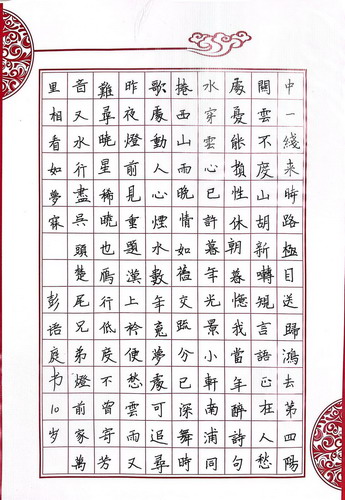 中一綫來時路極目送歸鴻去第四陽
關雲不度山胡新囀規言語正在人愁
處憂能損性休朝暮憶我當年醉詩句
水穿雲心已許暮年光景小軒南浦同
捲西山雨晚情如舊交疏分已深舞時
歌處動人心煙水數年魂夢處可追尋
昨夜燈前見重題漢上衿便愁雲雨又
難尋曉星稀曉也雁行低度不曾寄芳
音又水行盡吳頭楚尾兄弟燈前家萬
里相看如夢寐 彭语庭书10岁